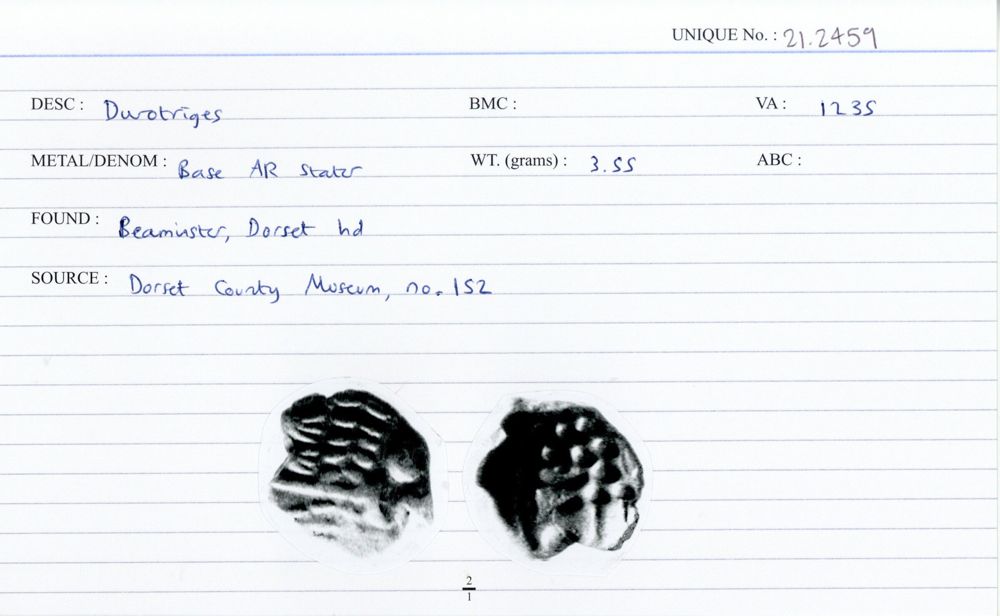 UNIQUE No. : 21.2459
DESC : Durotriges BMC : VA : 1235
METAL/DENOM : Base AR stater WT. (grams) : 3.55 ABC :
FOUND : Beaminster, Dorset hd
SOURCE : Dorset County Museum, no. 152
2
1